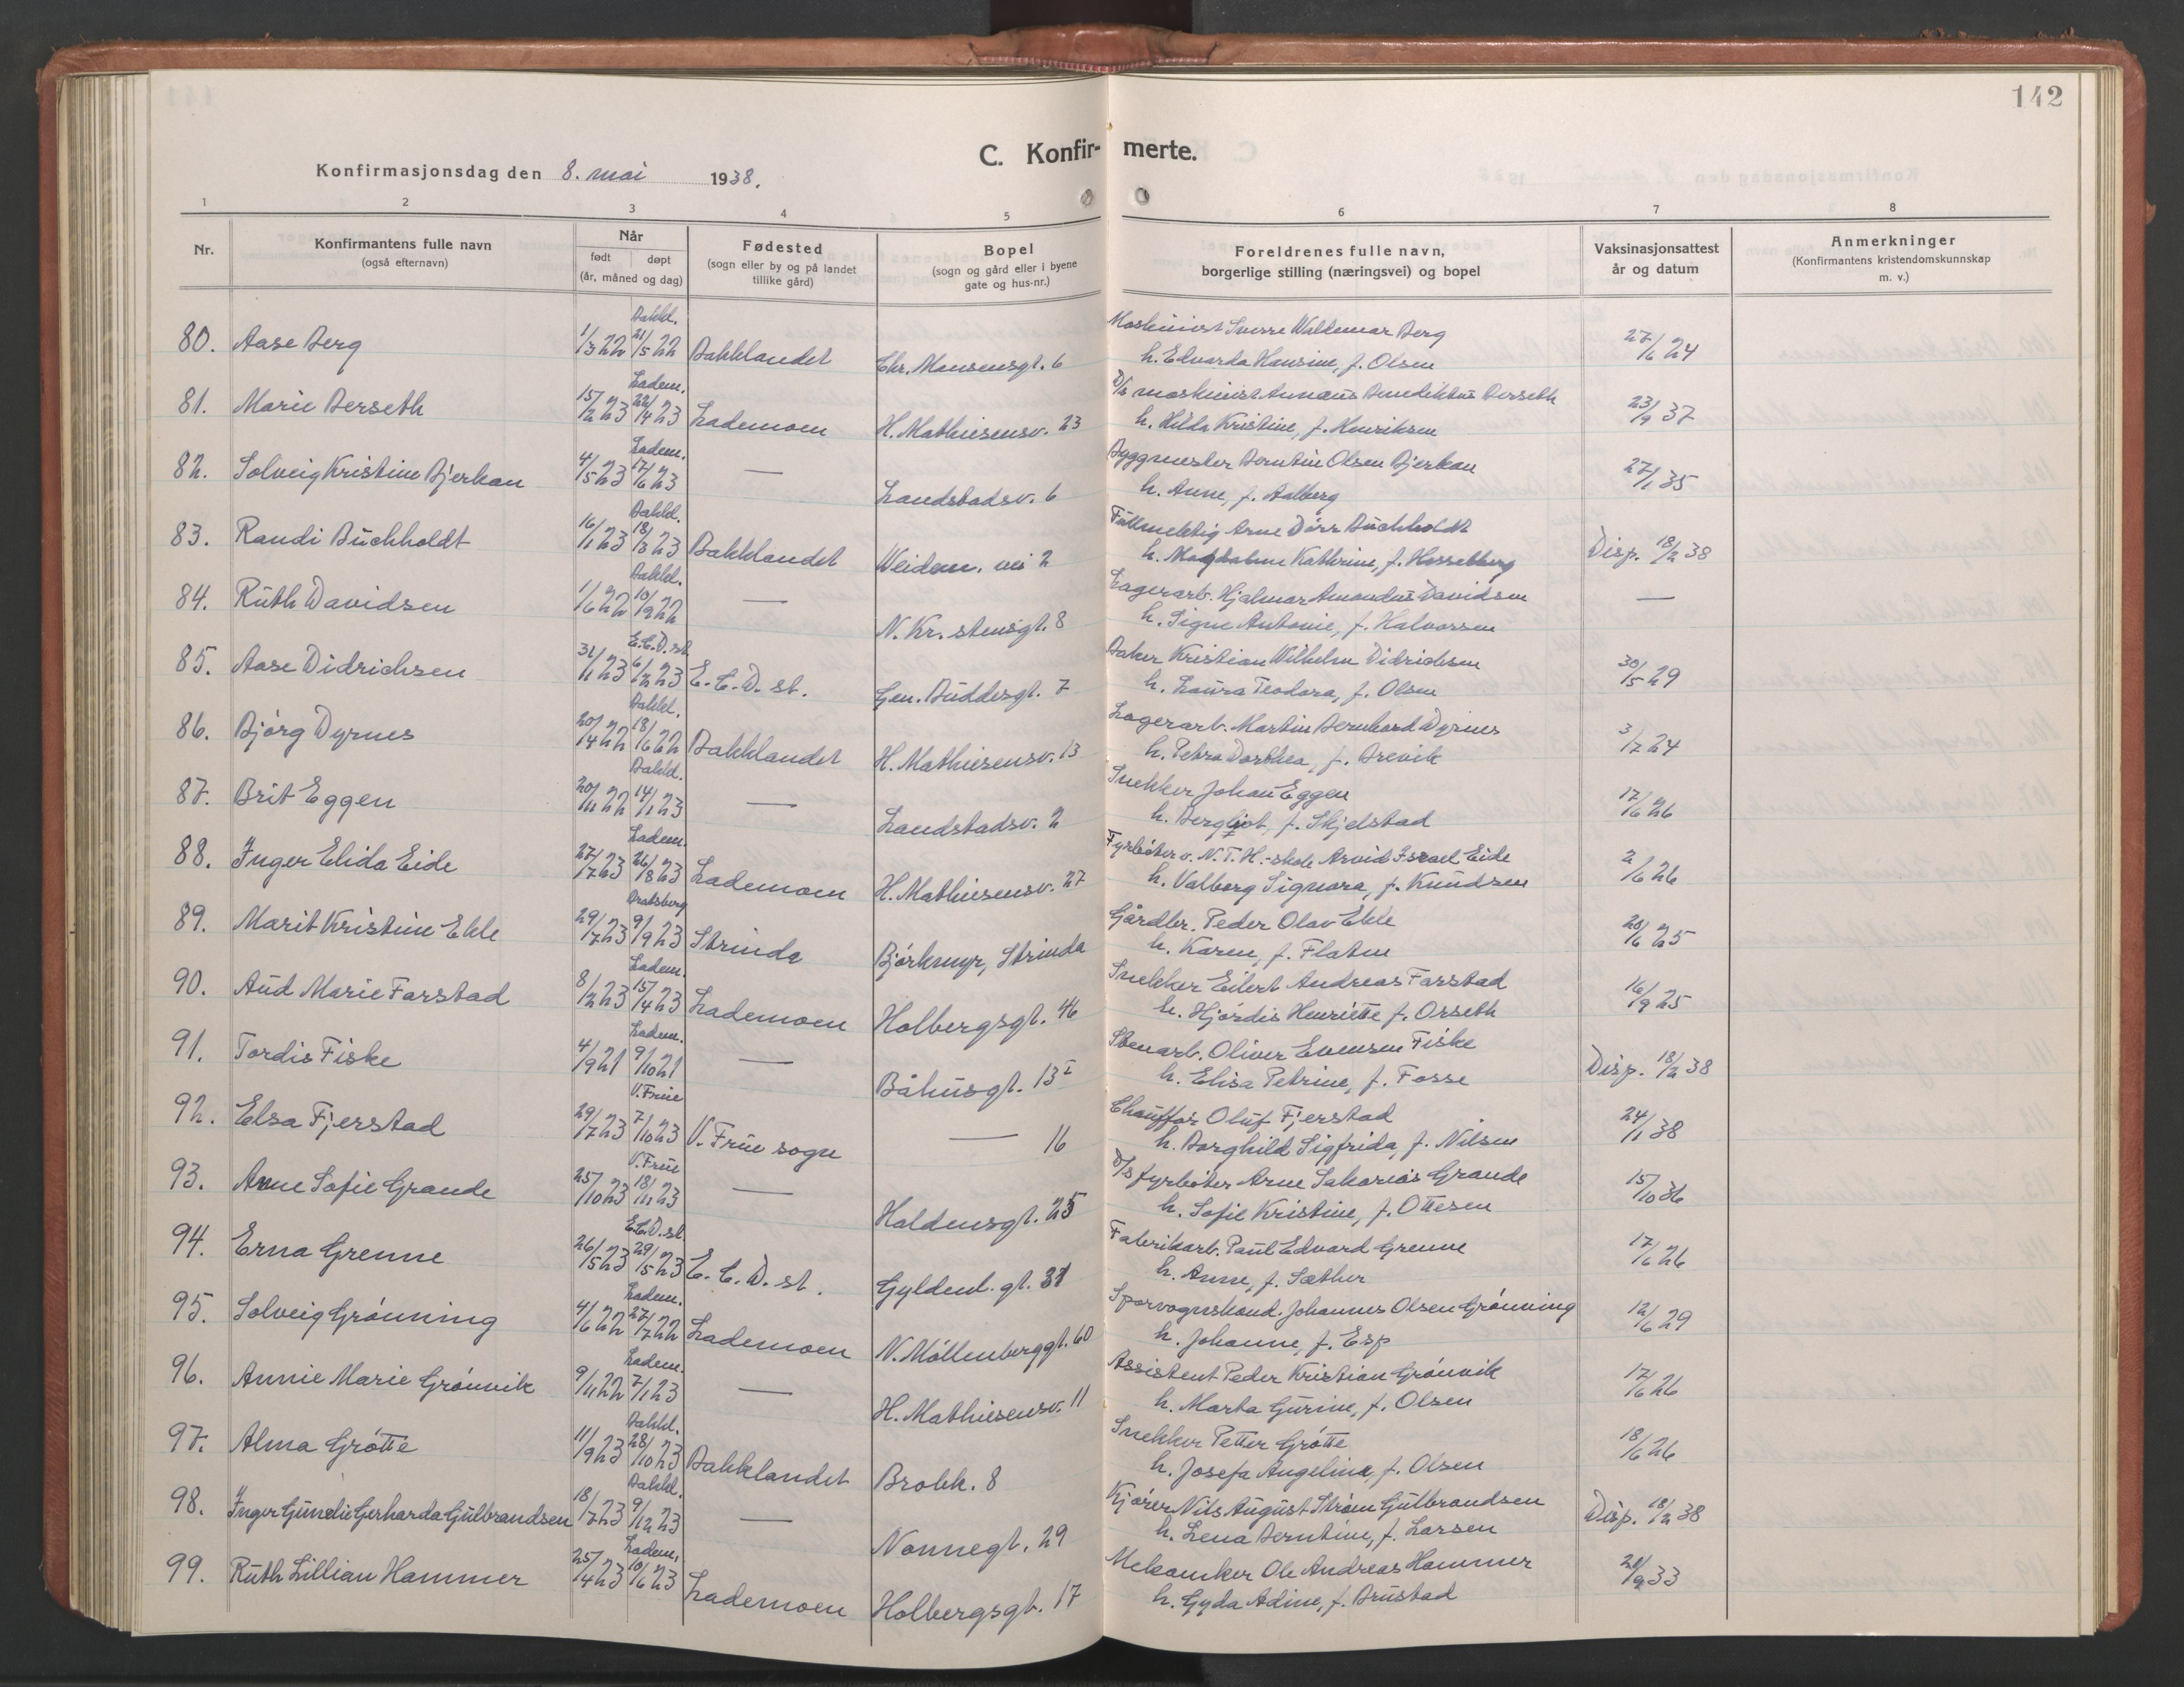 142
C. Konfir- merte.
Konfirmasjonsdag den 8. mai 1938.
1 2 3 4 5 6 7 8
Nr.
Konfirmantens fulle navn
(også efternavn)
Når
født døpt
(år, måned og dag)
Fødested
(sogn eller by og på landet
tillike gård)
Bopel
(sogn og gård eller i byene
gate og hus-nr.)
Foreldrenes fulle navn,
borgerlige stilling (næringsvei) og bopel
Vaksinasjonsattest
år og datum
Anmerkninger
(Konfirmantens kristendomskunnskap
m. v.)
Bakkl.
80. Aase Berg 1/3 22 21/5 22 Bakklandet Chr. Monsensgt. 6 Maskinist Sverre Waldemar Berg 27/6 24
h. Edvarda Hansine, f. Olsen
Ladem.
81. Marie Berseth 15/2 23 22/4 23 Lademoen H. Mathiesensv. 23 maskinist Annæus Benediktus Berseth 23/9 37
h. Hilda Kristine, f. Henriksen
Ladem.
82. Solveig Kristine Bjerkan 4/5 23 17/6 23 — Landstadsv. 6 Byggmester Berntin Olsen Bjerkan 27/1 35
h. Anne, f. Aalberg
Bakkl.
83. Randi Buchholdt 16/1 23 18/3 23 Bakklandet Weidem. vei 2 Fullmektig Arne Dørr Buchholdt Disp. 18/2 38
h. Magdalene Kathrine, f. Hasselberg
Bakkl.
84. Ruth Davidsen 1/6 22 10/9 22 — N. Kr. stensgt. 8 Lagerarb. Hjalmar Amandus Davidsen —
h. Signe Antonie, f. Halvorsen
E.C.D. st.
85. Aase Didrichsen 31/1 23 6/2 23 E. C. D. st. Gen. Buddesgt. 7 Baker Kristian Wilhelm Didrichsen 30/5 29
h. Laura Teodora, f. Olsen
Bakkl.
86. Bjørg Dyrnes 20/4 22 18/6 22 Bakklandet H. Mathiesensv. 13 Lagerarb. Martin Bernhard Dyrnes 3/7 24
h. Petra Dorthea, f. Brevik
Bakkl.
87. Brit Eggen 20/11 22 14/1 23 — Landstadsv. 2 Snekker Johan Eggen 17/6 26
h. Bergliot, f. Skjelstad
Ladem.
88. Inger Elida Eide 27/7 23 26/8 23 Lademoen H. Mathiesensv. 27 Fyrbøter v. N. T. H.-skole Arvid Israel Eide 2/6 26
h. Valborg Signora, f. Knudsen
Bratsberg
89. Marit Kristine Ekle 29/7 23 9/9 23 Strinda Bjørkmyr, Strinda Gårdbr. Peder Olav Ekle 20/6 25
h. Karen, f. Flaten
Ladem.
90. Aud Marie Farstad 8/2 23 15/4 23 Lademoen Holbergsgt. 46 Snekker Eilert Andreas Farstad 16/9 25
h. Hjørdis Henriette f. Orseth
Ladem.
91. Tordis Fiske 4/9 21 9/10 21 — Båhusgt. 13 I Stenarb. Oliver Evensen Fiske Disp. 18/2 38
h. Elisa Petrine, f. Fosse
V. Frue
92. Elsa Fjerstad 29/7 23 7/10 23 V. Frue sogn — 16 Chauffør Oluf Fjerstad 24/1 38
h. Borghild Sigfrida, f. Nilsen
V. Frue
93. Anne Sofie Grande 25/10 23 18/11 23 — Haldensgt. 25 D/s fyrbøter Arne Sakarias Grande 15/10 36
h. Sofie Kristine, f. Ottesen
E.C.D. st.
94. Erna Grenne 26/5 23 29/5 23 E. C. D. st. Gyldenl. gt. 31 Fabrikarb. Paul Edvard Grenne 17/6 26
h. Anne, f. Sæther
Ladem.
95. Solveig Grønning 4/6 22 27/7 22 Lademoen N. Møllenberggt. 60 Sporvognskond. Johannes Olsen Grønning 12/6 29
h. Johanne, f. Esp
Ladem.
96. Annie Marie Grønvik 9/11 22 7/1 23 — H. Mathiesensv. 11 Assistent Peder Kristian Grønvik 17/6 26
h. Marta Gurine, f. Olsen
Bakkl.
97. Alma Grøtte 11/9 23 28/10 23 Bakklandet Brobk. 8 Snekker Petter Grøtte 18/6 26
h. Josefa Angelina, f. Olsen
Bakkl.
98. Inger Gunelie Gerharda Gulbrandsen 18/7 23 9/12 23 — Nonnegt. 29 Kjører Nils August Strøm Gulbrandsen Disp. 18/2 38
h. Lena Berntine, f. Larsen
Ladem.
99. Ruth Lillian Hammer 25/4 23 10/6 23 Lademoen Holbergsgt. 17 Mekaniker Ole Andreas Hammer 21/9 33
h. Gyda Adine, f. Brustad